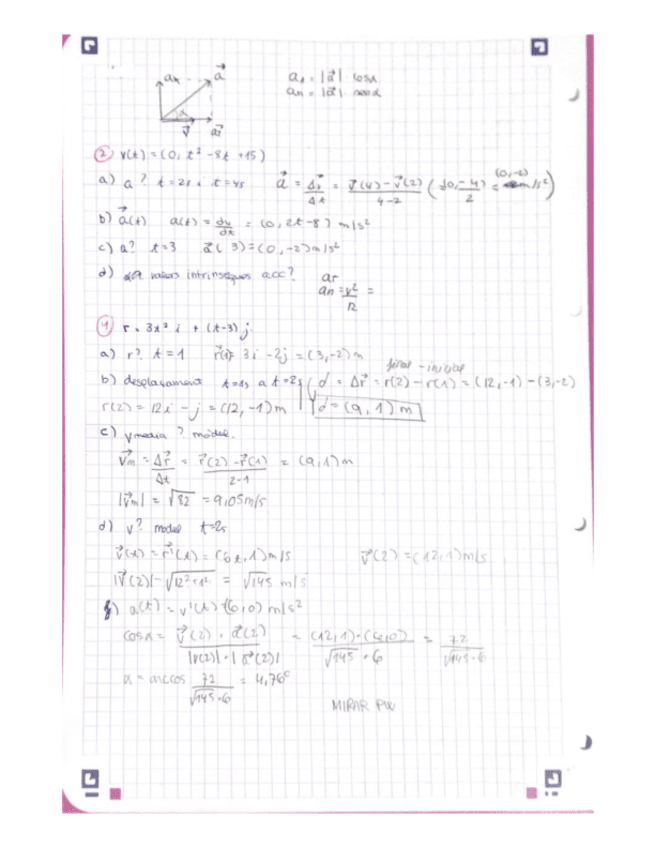 an a⃗ at = |a⃗| · cosα
α an = |a⃗| · senα
v⃗ a⃗t
2 v(t) = (0, t² -8t +15)
a) a? t=2s i t=4s a⃗ = Δv⃗/Δt = (v⃗(4) - v⃗(2))/(4-2) (0, -4)/2 = (0,-2) m/s²
b) a⃗(t) a(t) = dv/dt = (0, 2t-8) m/s²
c) a? t=3 a⃗(3) = (0, -2) m/s²
d) valors intrínseques acc? at
an = v²/R =
4 r = 3t² i + (t-3) j
a) r? t=1 r⃗(1)= 3i -2j = (3,-2) m
final - inicial
b) desplaçament t=1s a t=2s d = Δr⃗ = r(2) - r(1) = (12,-1) - (3,-2)
r(2) = 12i - j = (12, -1) m d = (9, 1) m
c) vmedia? mòdul.
v⃗m = Δr⃗/Δt = (r⃗(2) - r⃗(1))/(2-1) = (9,1) m
|v⃗m| = √82 = 9,05 m/s
d) v? modul t=2s
v⃗(t) = r⃗'(t) = (6t, 1) m/s v⃗(2) = (12,1) m/s
|v⃗(2)| = √12²+1² = √145 m/s
f) a(t) = v'(t) = (6,0) m/s²
cosα = (v⃗(2) · a⃗(2))/(|v(2)| · |a⃗(2)|) = ((12,1)·(6,0))/(√145 · 6) = 72/(√145·6)
α = arccos 72/(√145·6) = 4,76º
MIRAR PW